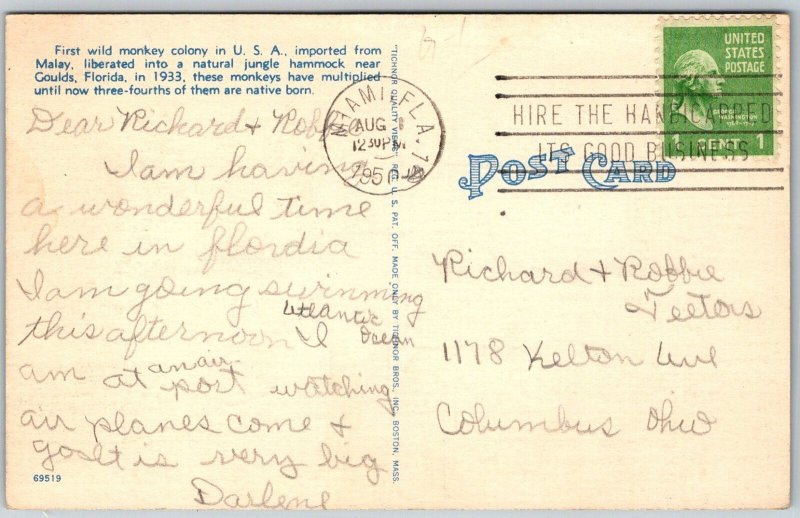 First wild monkey colony in U. S. A., imported from
Malay, liberated into a natural jungle hammock near
Goulds, Florida, in 1933, these monkeys have multiplied
until now three-fourths of them are native born.
Dear Richard + Robbie
I am having
a wonderful time
here in flordia
I am going swimming
this afternoon Atlantic Ocean I
am at an air port watching
air planes come +
go It is very big
Darlene
69519
"TICHNOR QUALITY VIEWS" REG. U. S. PAT. OFF. MADE ONLY BY TICHNOR BROS. INC., BOSTON, MASS.
MIAMI, FLA.
AUG
12 30 PM
1950
HIRE THE HANDICAPPED
ITS GOOD BUSINESS
UNITED
STATES
POSTAGE
GEORGE
WASHINGTON
1 CENT 1
POST CARD
Richard + Robbie
Teetors
1178 Kelton Ave
Columbus Ohio